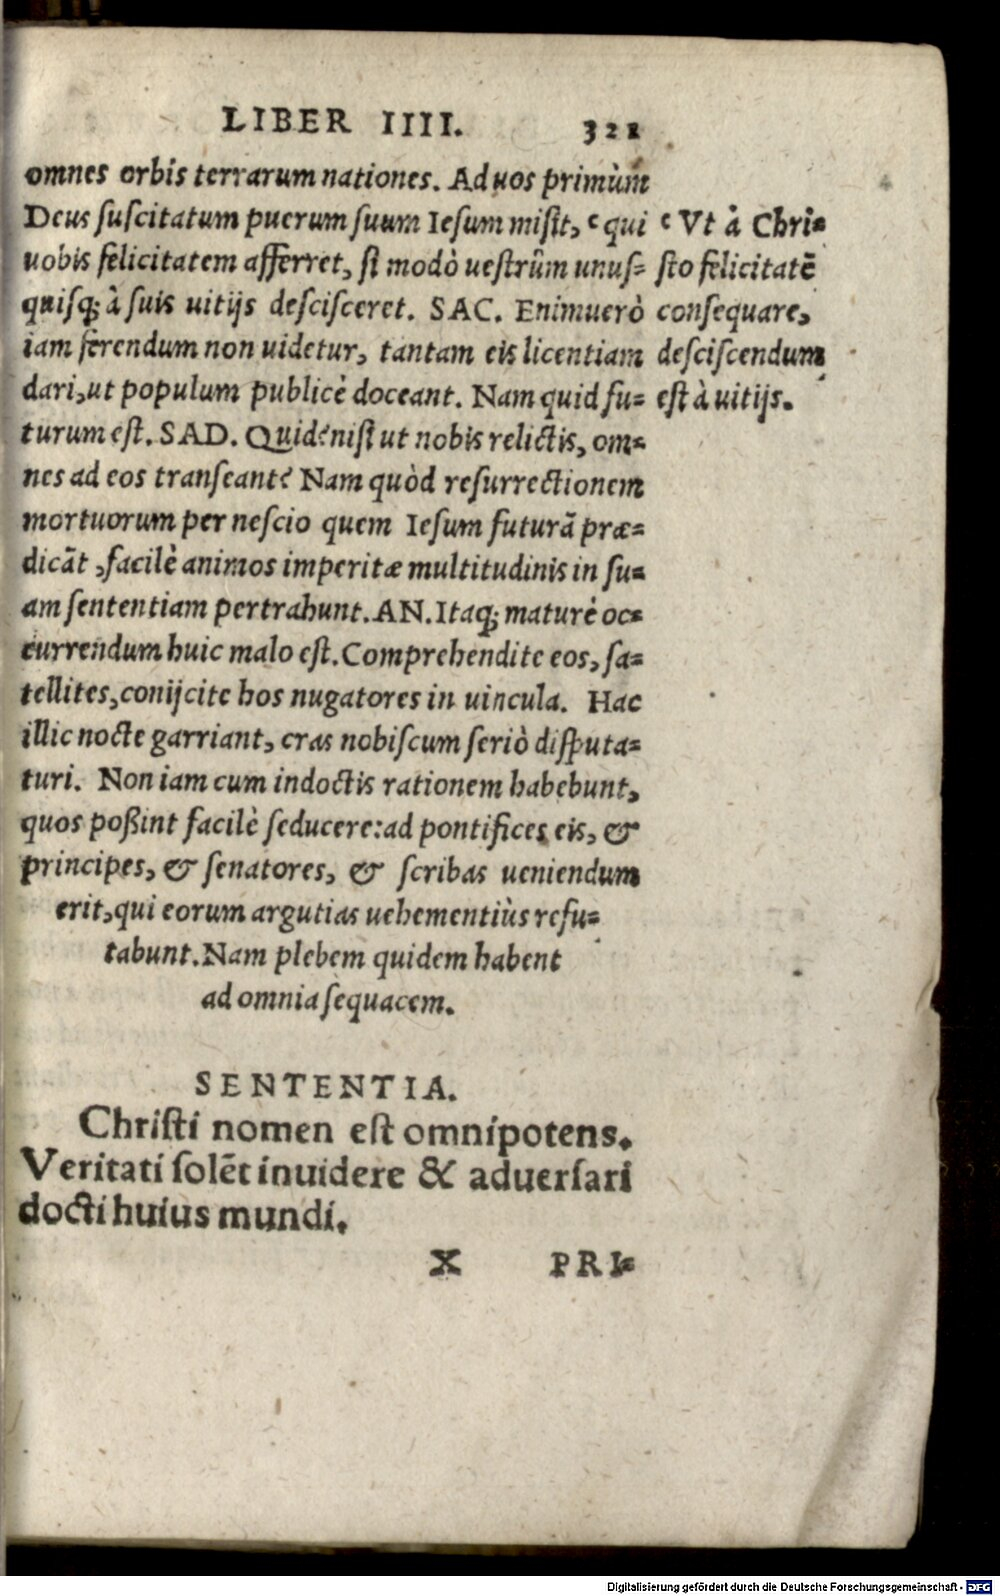 LIBER IIII. 321
omnes orbis terrarum nationes. Ad uos primùm
Deus suscitatum puerum suum Iesum misit, ᶜ qui
uobis felicitatem afferret, si modò uestrûm unus-
quisq; à suis uitijs descisceret. SAC. Enimuerò
iam ferendum non uidetur, tantam eis licentiam
dari, ut populum publicè doceant. Nam quid fu-
turum est. SAD. Quid? nisi ut nobis relictis, om-
nes ad eos transeant? Nam quòd resurrectionem
mortuorum per nescio quem Iesum futurã præ-
dicãt, facilè animos imperitæ multitudinis in su-
am sententiam pertrahunt. AN. Itaq; maturè oc-
currendum huic malo est. Comprehendite eos, sa-
tellites, conijcite hos nugatores in uincula. Hac
illic nocte garriant, cras nobiscum seriò disputa-
turi. Non iam cum indoctis rationem habebunt,
quos poßint facilè seducere: ad pontifices eis, &
principes, & senatores, & scribas ueniendum
erit, qui eorum argutias uehementiùs refu-
tabunt. Nam plebem quidem habent
ad omnia sequacem.
ᶜ Vt à Chri-
sto felicitatẽ
consequare,
desciscendum
est à uitijs.
SENTENTIA.
Christi nomen est omnipotens.
Veritati solẽt inuidere & aduersari
docti huius mundi.
X PRI-
Digitalisierung gefördert durch die Deutsche Forschungsgemeinschaft - DFG